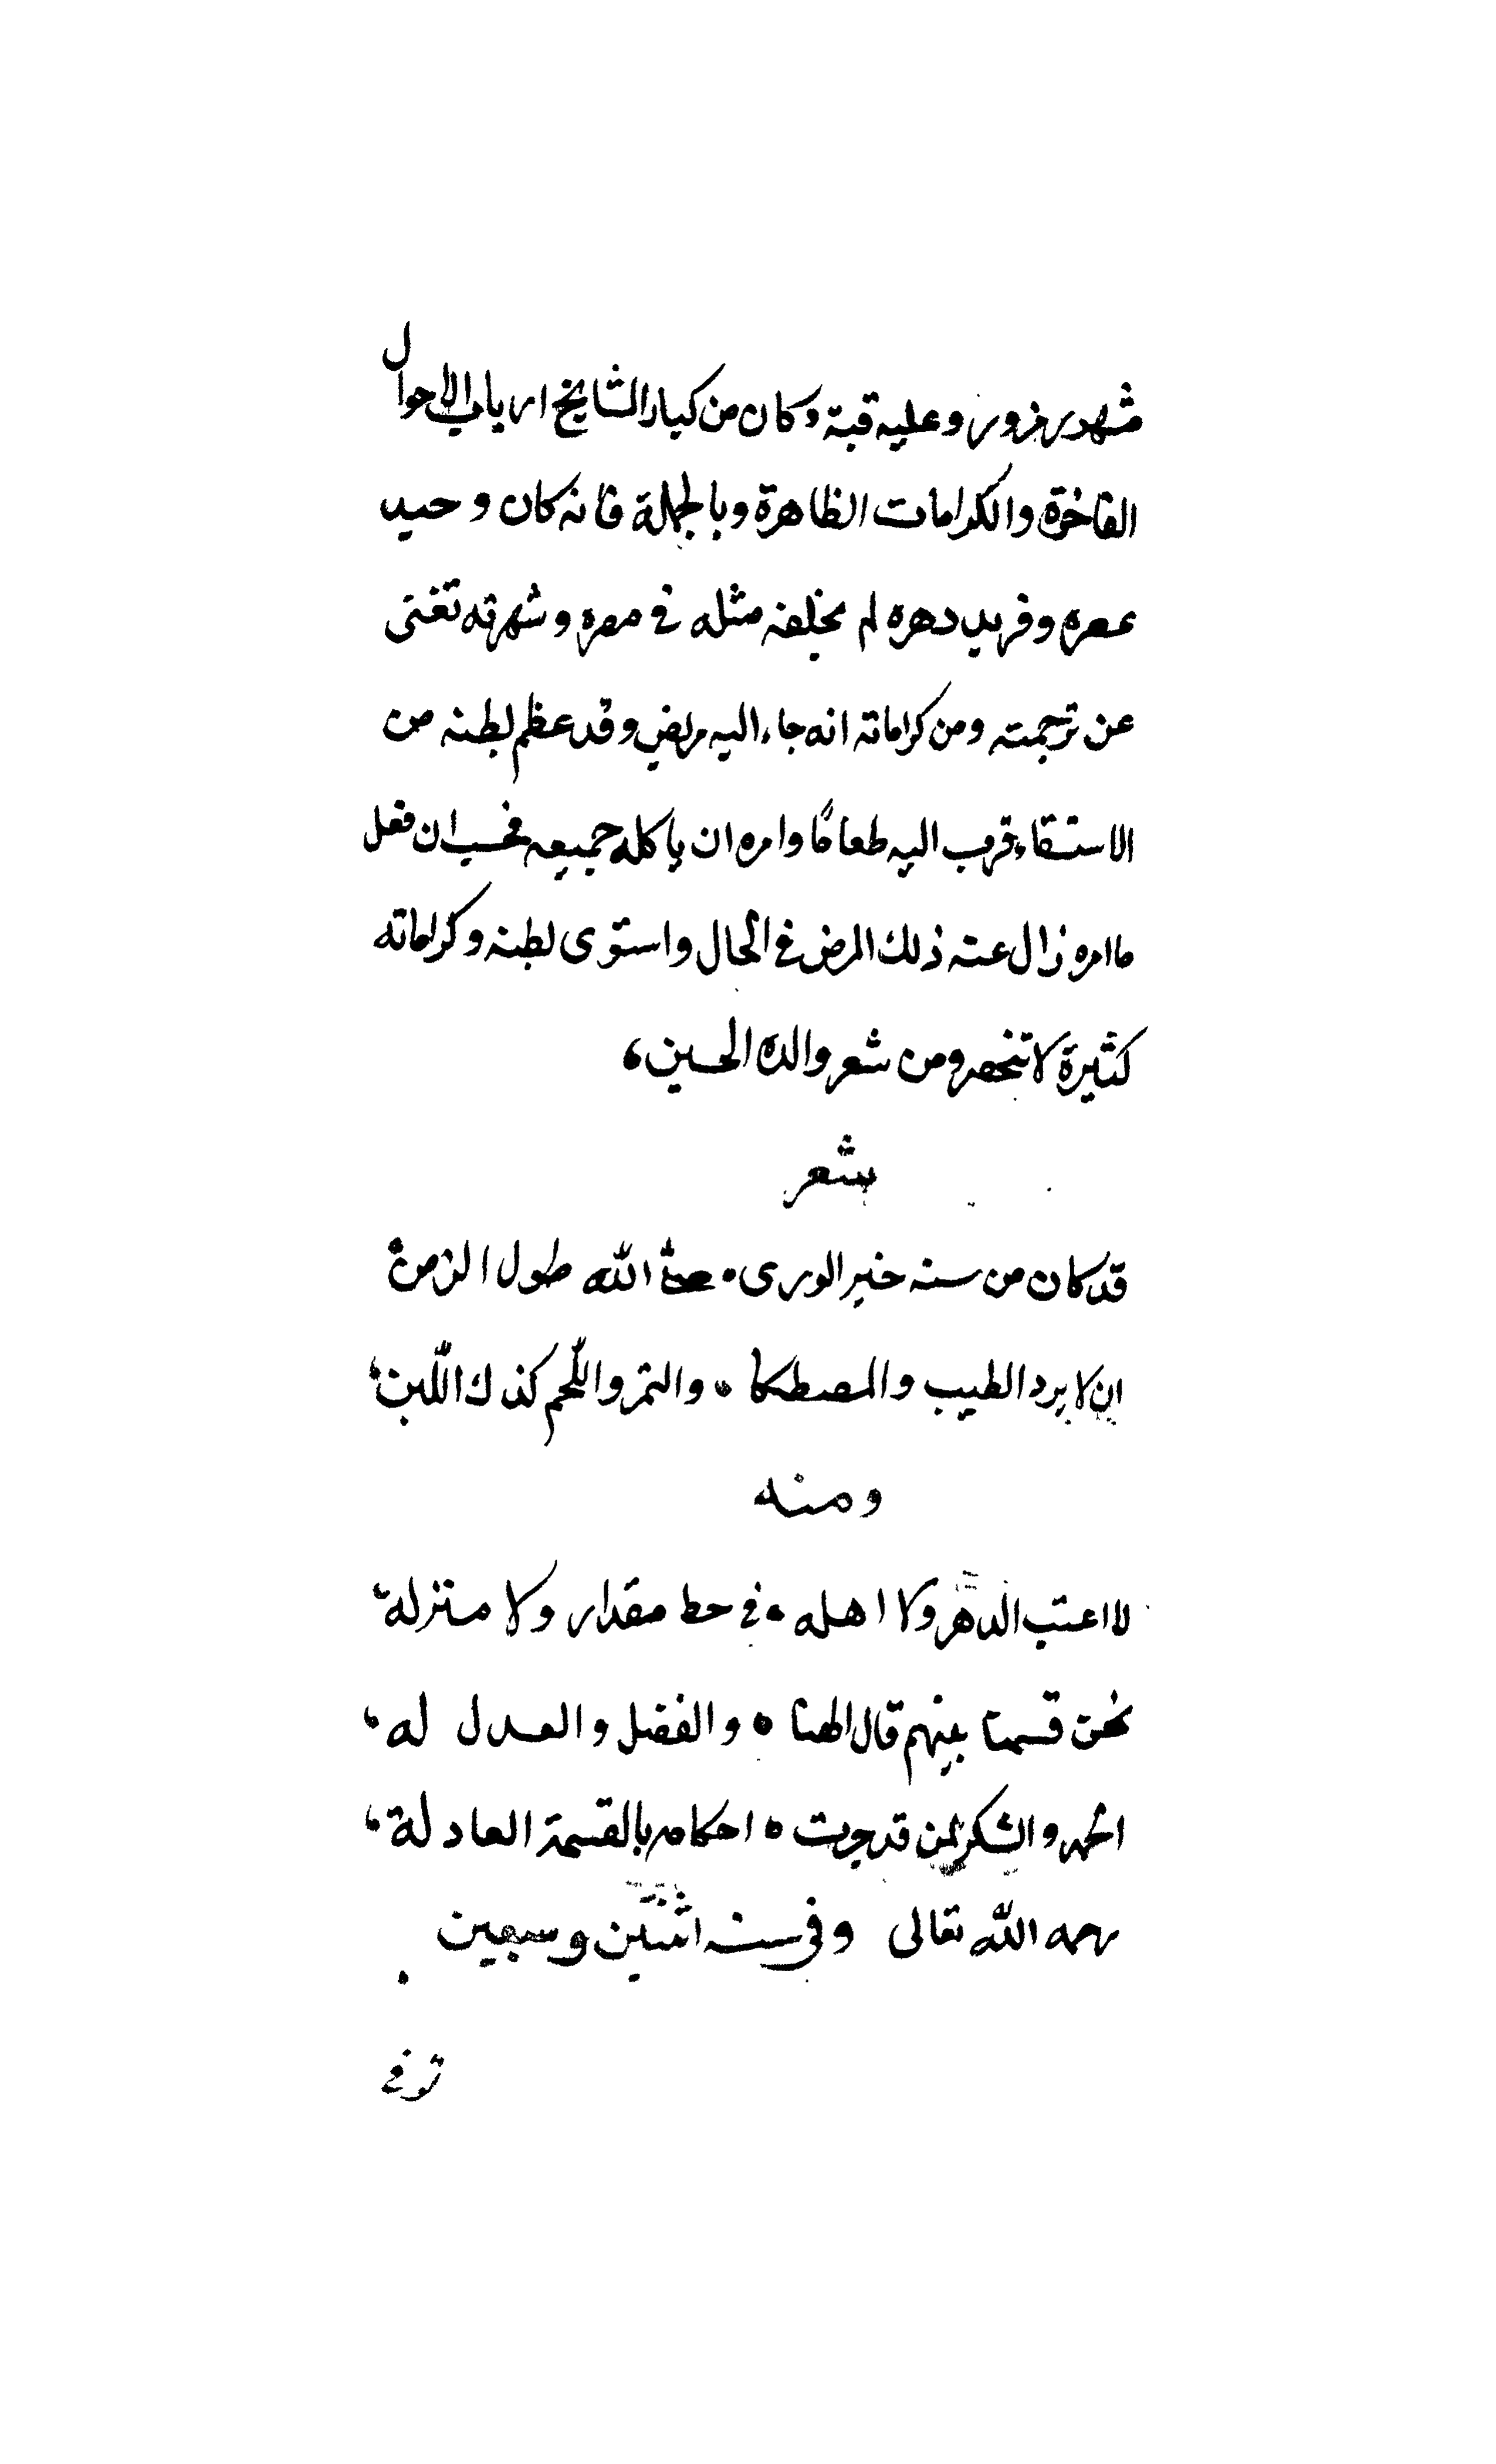 مشهد يزور وعليه قبة وكان من كبار المشايخ ارباب الاحوال
الفاخرة والكرامات الظاهرة وبالجملة فانه كان وحيد
عصره وفريد دهره لم يخلف مثله في مصره وشهرته تغنى
عن ترجمته ومن كراماته انه جاء اليه مريض وقد عظم بطنه من
الاستسقاء فقرب اليه طعامًا وامره ان ياكله جميعه فحسب ان فعل
ما امره زال عنه ذلك المرض في الحال واستوى بطنه وكراماته
كثيرة لا تنحصر ومن شعر والده الحسين،
شعر
قد كان من سنه خير الورى • صلى الله طول الزمن
ان لا يرد الطيب والمصطكا • والتمر واللّحم كذك اللّبن
ومنه
لا اعتب الدهر ولا اهله • في حط مقدار ولا منزلة
نحن قسمنا بينهم قال الهنا • والفضل والعدل له
الحمد والشكر لمن قد جرت • احكامه بالقسمة العادلة
رحمه الله تعالى وفي سنه اثنتين وسبعين
توفي